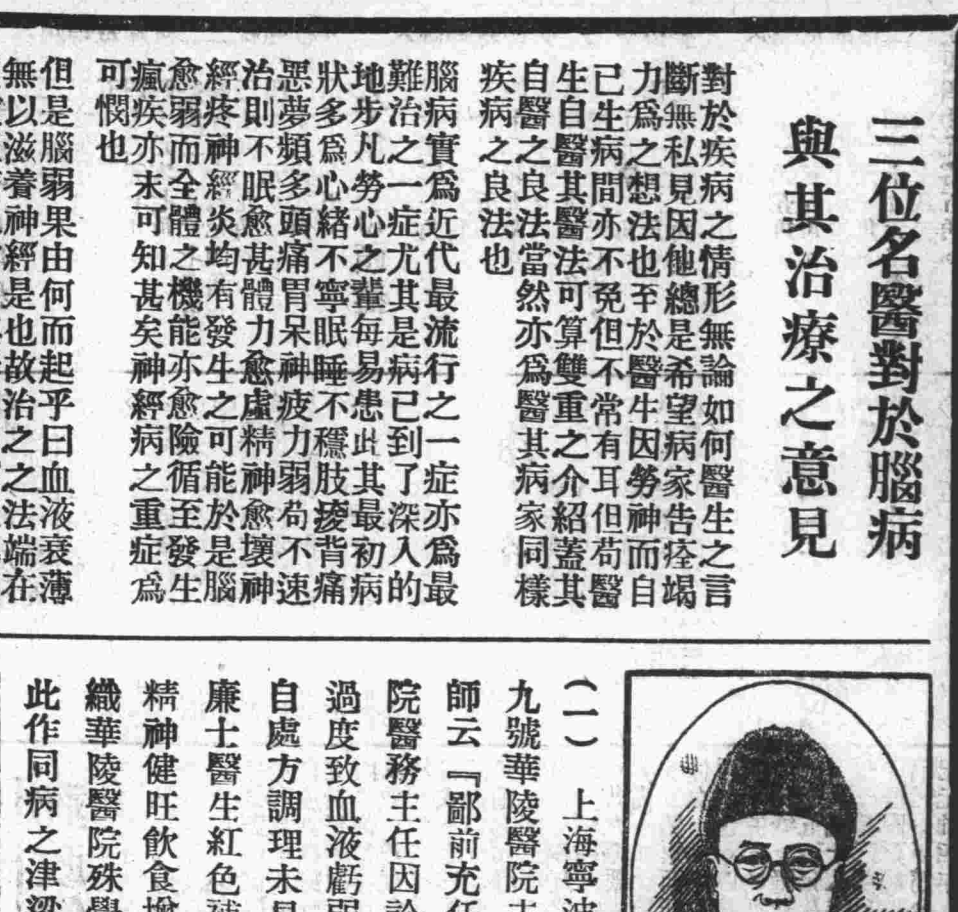 三位名醫對於腦病
與其治療之意見
對於疾病之情形無論如何醫生之言
斷無私見因他總是希望病家告痊竭
力爲之想法也至於醫生因勞神而自
已生病間亦不免但不常有耳但苟醫
生自醫其醫法可算雙重之介紹蓋其
自醫之良法當然亦爲醫其病家同樣
疾病之良法也
腦病實爲近代最流行之一症亦爲最
難治之一症尤其是病已到了深入的
地步凡勞心之輩每易患此其最初病
狀多爲心緒不寧眠睡不穩肢痠背痛
惡夢頻多頭痛胃呆神疲力弱苟不速
治則不眠愈甚體力愈虛精神愈壞神
經疼神經炎均有發生之可能於是腦
愈弱而全體之機能亦愈險循至發生
瘋疾亦未可知甚矣神經病之重症爲
可憫也
但是腦弱果由何而起乎曰血液衰薄
無以滋養神經是也故治之之法端在
(一) 上海寧波
九號華陵醫院
師云『鄙前充任
院醫務主任因診
過度致血液虧弱
自處方調理未見
廉士醫生紅色補
精神健旺飲食增
織華陵醫院殊學
此作同病之津梁